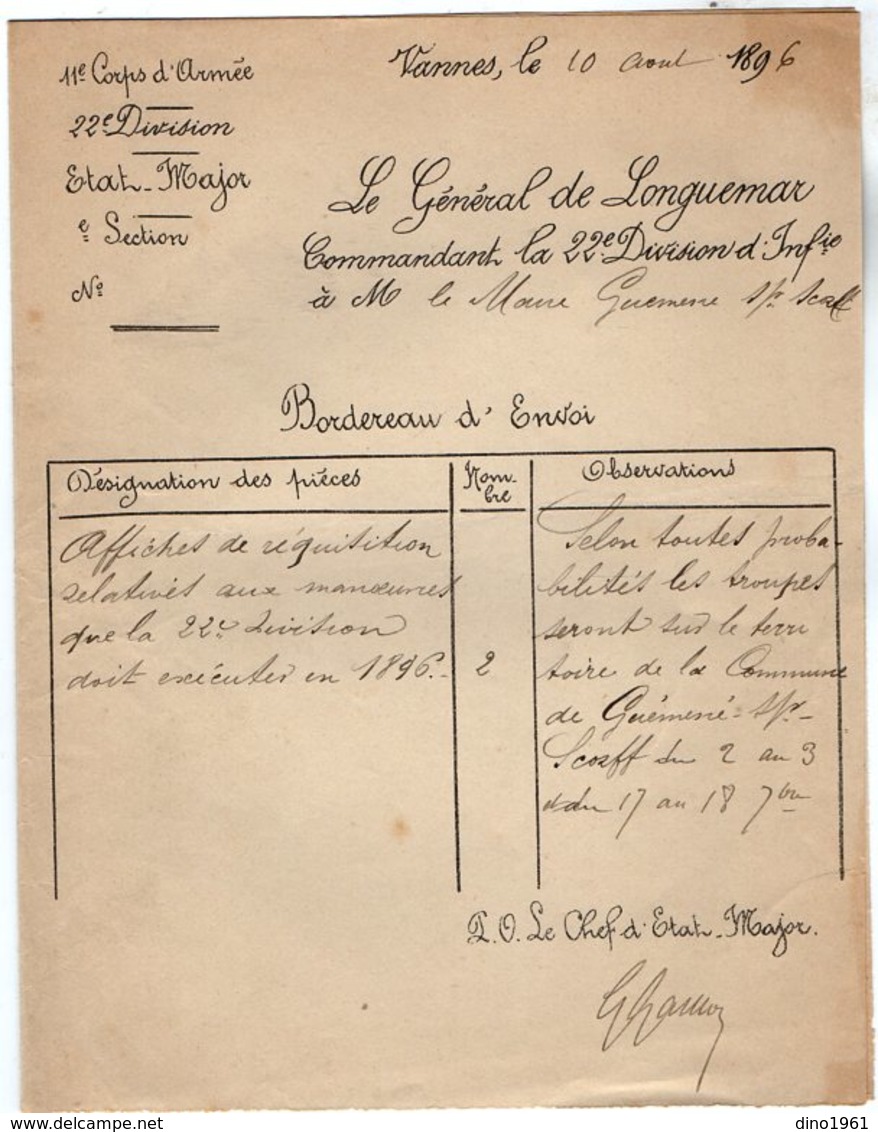 11e Corps d'Armée
22e Division
Etat-Major
e Section
No
Vannes, le 10 aout 1896
Le Général de Longuemar
Commandant la 22e Division d'Infie
à M le Maire Guemene s/r Scorff
Bordereau d'Envoi
Désignation des pièces
Affiches de réquisition
relatives aux manœuvres
que la 22e Division
doit exécuter en 1896.-
Nom-
bre
2
Observations
Selon toutes proba-
bilités les troupes
seront sur le terri
toire de la Commune
de Guémené-s/r-
Scorff du 2 au 3
et du 17 au 18 7bre
P.O. Le Chef d'Etat-Major.
dino1961